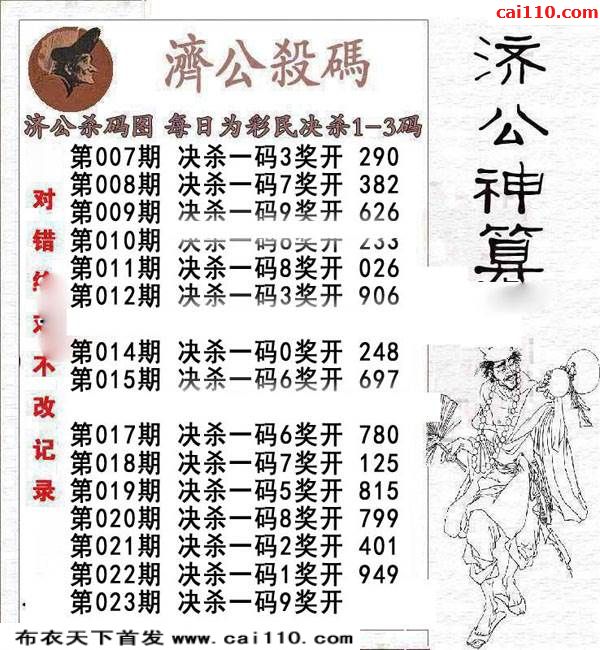 cai110.com
濟公殺碼
济公杀码图 每日为彩民决杀1-3码
第007期 决杀一码3奖开 290
第008期 决杀一码7奖开 382
第009期 决杀一码9奖开 626
第010期 决杀一码 奖开 233
第011期 决杀一码8奖开 026
第012期 决杀一码3奖开 906
第014期 决杀一码0奖开 248
第015期 决杀一码6奖开 697
第017期 决杀一码6奖开 780
第018期 决杀一码7奖开 125
第019期 决杀一码5奖开 815
第020期 决杀一码8奖开 799
第021期 决杀一码2奖开 401
第022期 决杀一码1奖开 949
第023期 决杀一码9奖开
对错 不改记录
济公神算
布衣天下首发 www.cai110.com